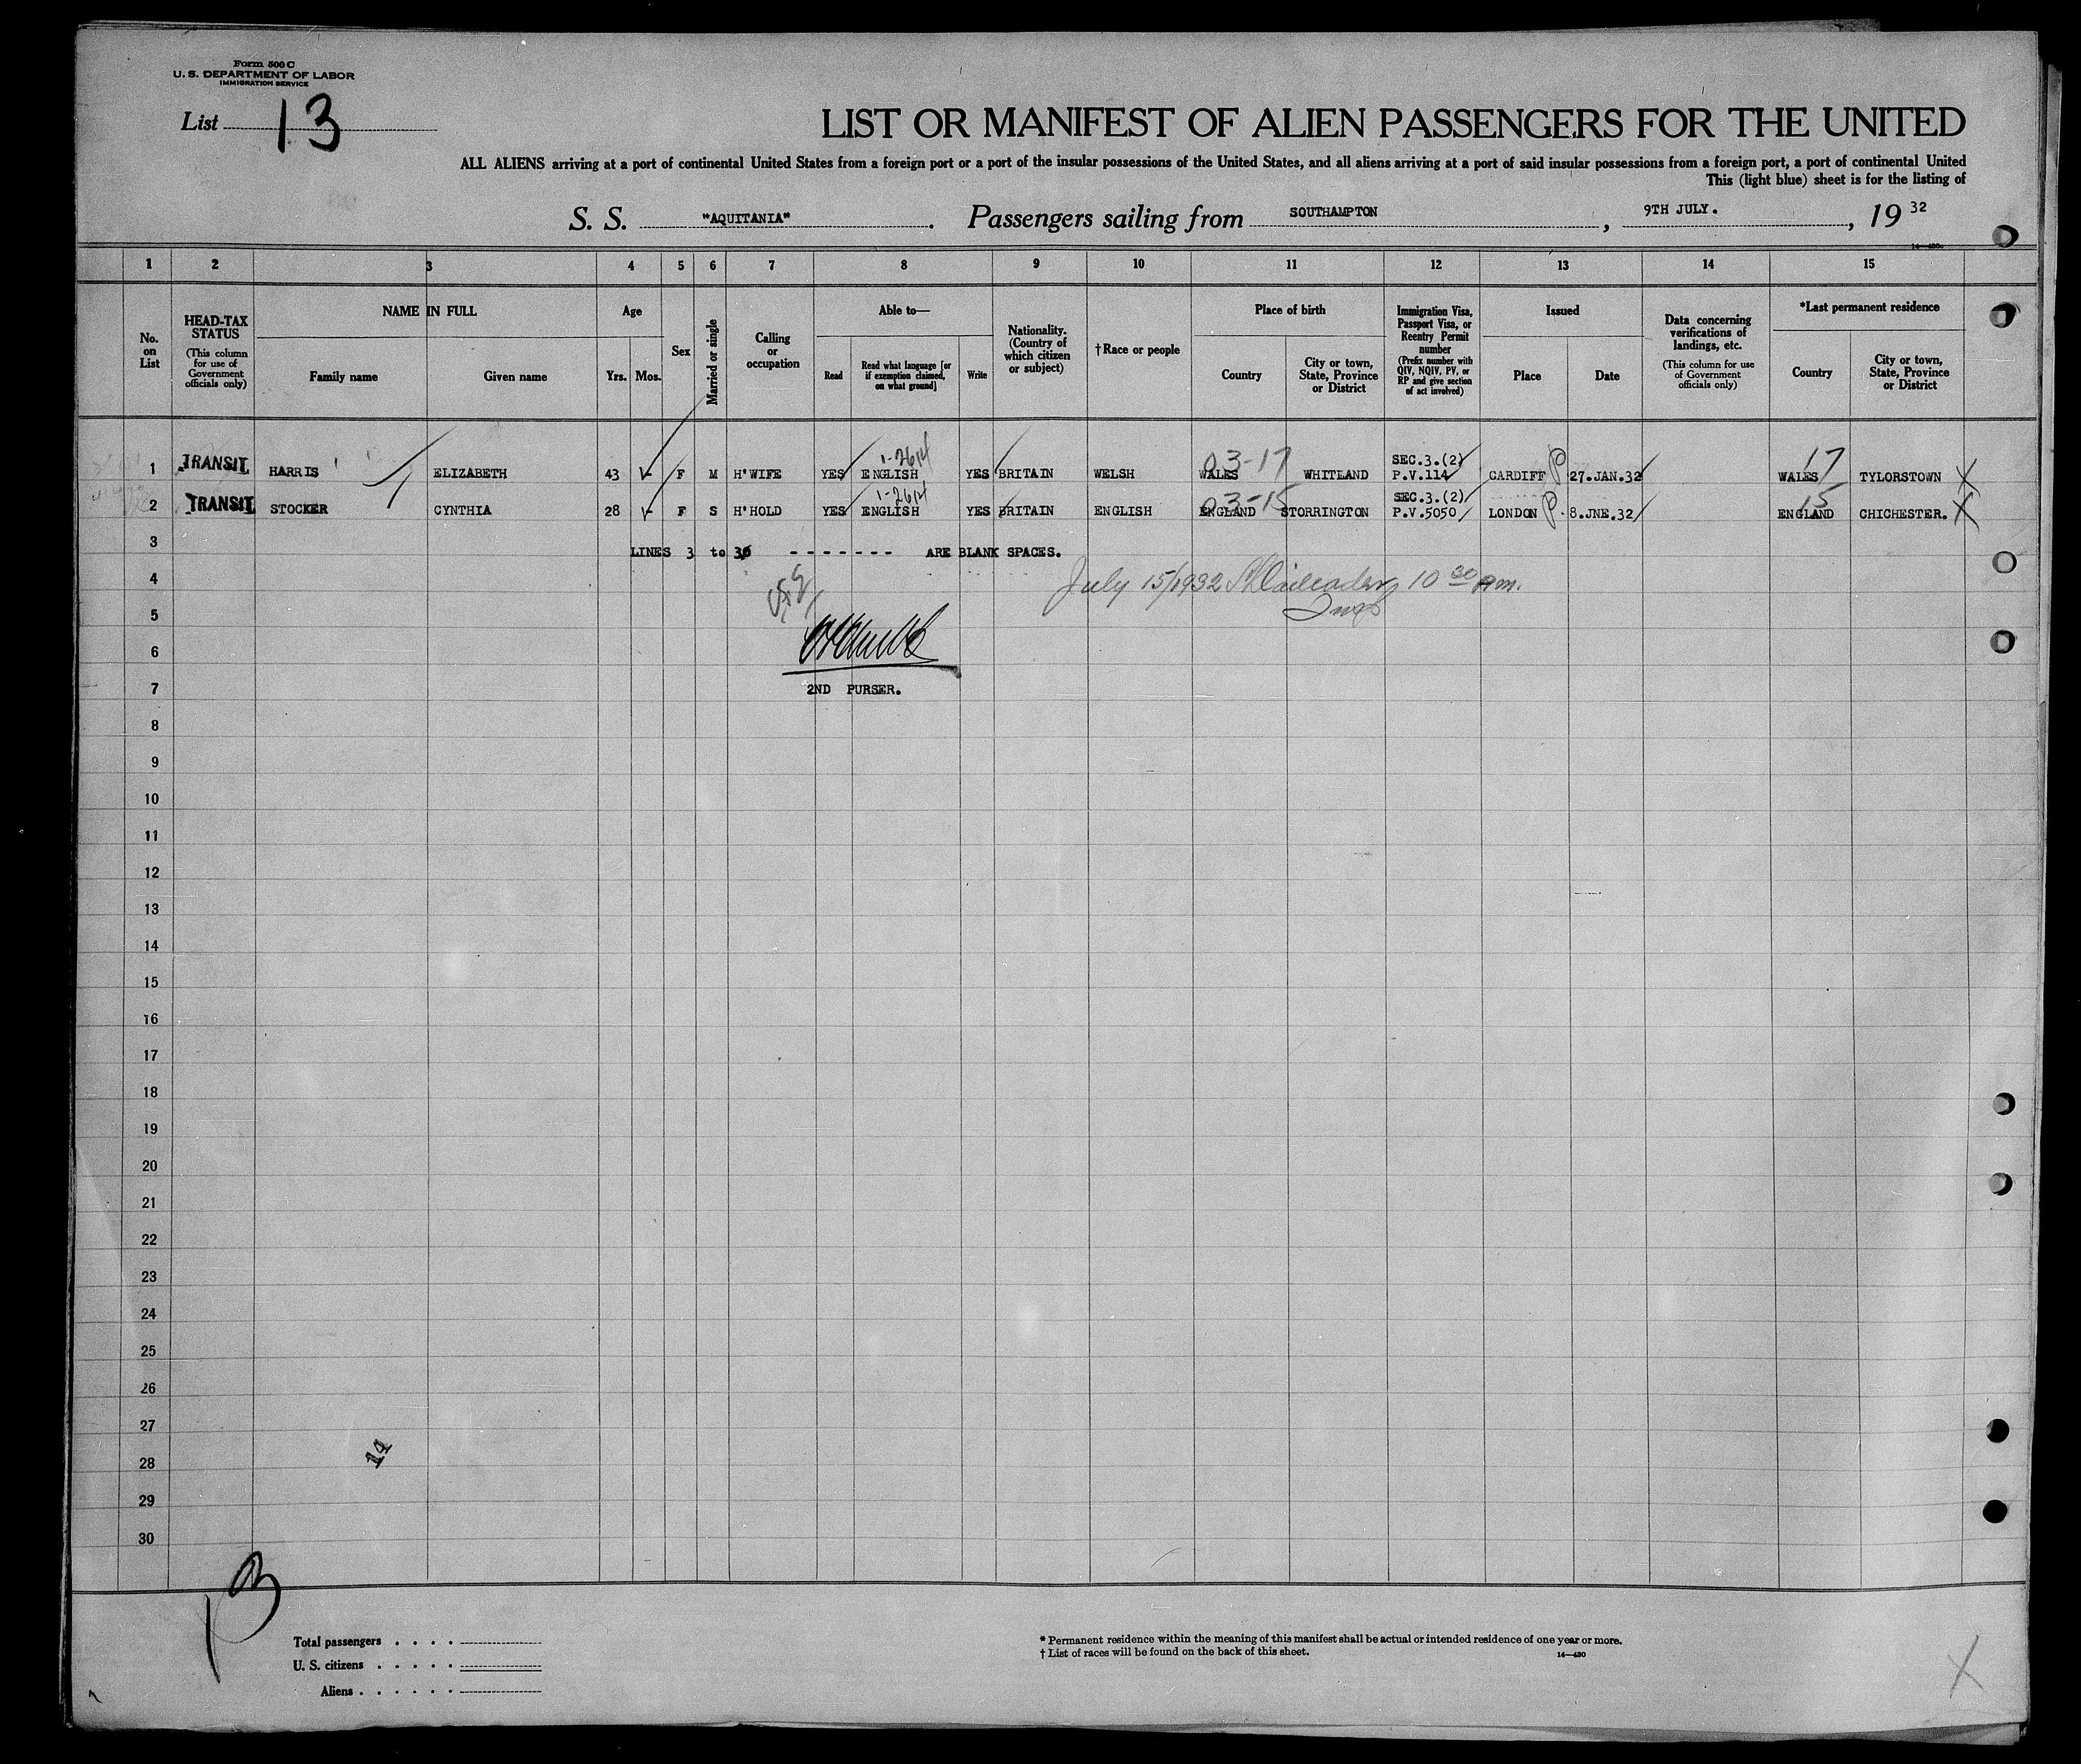 Form 500 C
U. S. DEPARTMENT OF LABOR
IMMIGRATION SERVICE
List 13
LIST OR MANIFEST OF ALIEN PASSENGERS FOR THE UNITED
ALL ALIENS arriving at a port of continental United States from a foreign port or a port of the insular possessions of the United States, and all aliens arriving at a port of said insular possessions from a foreign port, a port of continental United
This (light blue) sheet is for the listing of
S. S. "AQUITANIA". Passengers sailing from SOUTHAMPTON, 9TH JULY., 19 32
1 2 3 4 5 6 7 8 9 10 11 12 13 14 15
No. on List
HEAD-TAX STATUS (This column for use of Government officials only)
NAME IN FULL
Family name
Given name
Age
Yrs.
Mos.
Sex
Married or single
Calling or occupation
Able to—
Read
Read what language [or if exemption claimed, on what ground]
Write
Nationality. (Country of which citizen or subject)
†Race or people
Place of birth
Country
City or town, State, Province or District
Immigration Visa, Passport Visa, or Reentry Permit number (Prefix number with QIV, NQIV, PV, or RP and give section of act involved)
Issued
Place
Date
Data concerning verifications of landings, etc. (This column for use of Government officials only)
*Last permanent residence
Country
City or town, State, Province or District
1-2614 03-17 SEC.3.(2) 17
1 TRANSIT HARRIS ELIZABETH 43 - F M H'WIFE YES ENGLISH YES BRITAIN WELSH WALES WHITLAND P.V.114 CARDIFF P 27.JAN.32 WALES TYLORSTOWN X
1-2614 03-15 SEC.3.(2) 15
2 TRANSIT STOCKER CYNTHIA 28 - F S H'HOLD YES ENGLISH YES BRITAIN ENGLISH ENGLAND STORRINGTON P.V.5050 LONDON P. 8.JNE.32 ENGLAND CHICHESTER. X
3 LINES 3 to 30 - - - - - - - ARE BLANK SPACES.
4 July 15/1932 10 30 am.
5
6
7 2ND PURSER.
8
9
10
11
12
13
14
15
16
17
18
19
20
21
22
23
24
25
26
27
28 14
29
30
13
Total passengers . . . .
U. S. citizens . . . . .
Aliens . . . . . .
* Permanent residence within the meaning of this manifest shall be actual or intended residence of one year or more.
† List of races will be found on the back of this sheet.
14—430
X